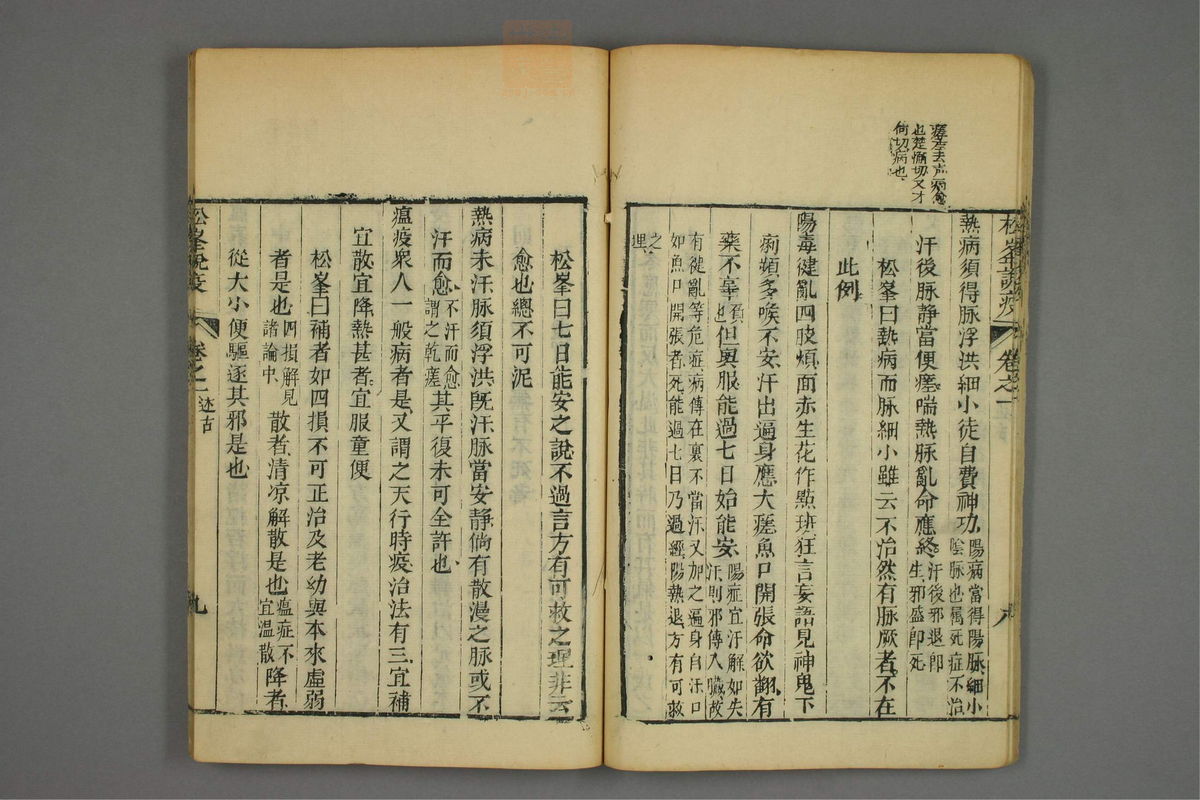 瘥差去声病愈
也楚懈切又才
何切病也
松峯說疫 卷之一 八
熱病須得脉浮洪細小徒自費神功陽病當得陽脉細小
陰脉也属死症不治
汗後脉靜當便瘥喘熱脉亂命應終汗後邪退即
生邪盛即死
松峯曰熱病而脉細小雖云不治然有脉厥者不在
此例
陽毒健亂四肢煩面赤生花作㸃斑狂言妄語見神鬼下
痢頻多喉不安汗出遍身應大瘥魚口開張命欲翻有
藥不辜負
也但與服能過七日始能安陽症宜汗解如失
汗則邪傳入臟故
有健亂等危症病傳在裏不當汗又加之遍身自汗口
如魚口開張者死能過七日乃過經陽熱退方有可救
之
理
松峯曰七日能安之說不過言方有可救之理非云
愈也總不可泥
熱病未汗脉須浮洪旣汗脉當安靜倘有散漫之脉或不
汗而愈不汗而愈
謂之乾瘥其平復未可全許也
瘟疫衆人一般病者是又謂之天行時疫治法有三宜補
宜散宜降熱甚者宜服童便
松峯曰補者如四損不可正治及老幼與本來虛弱
者是也四損解見
諸論中散者清凉解散是也瘟症不
宜温散降者
從大小便驅逐其邪是也
松峯說疫 卷之一 述古 九